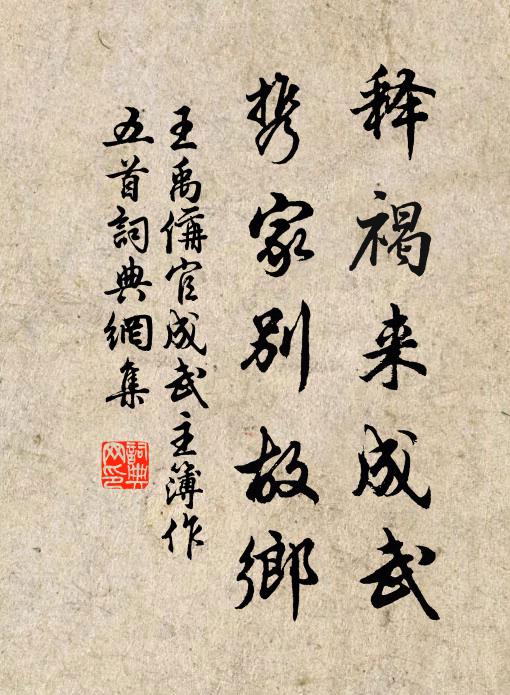 释褐来成武
携家别故鄉
王禹偁官成武主簿作
五首詞典網集
詞典网印